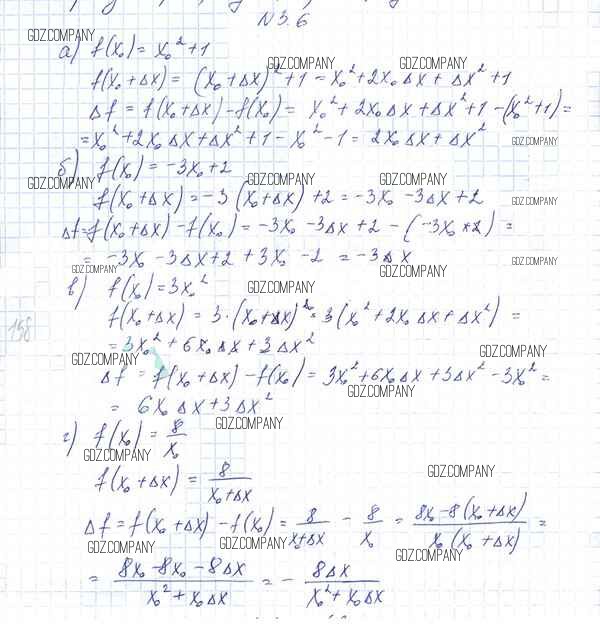 N 3.6
GDZ.COMPANY
а) f(x₀) = x₀² + 1
GDZ.COMPANY GDZ.COMPANY
f(x₀ + Δx) = (x₀ + Δx)² + 1 = x₀² + 2x₀Δx + Δx² + 1
Δf = f(x₀ + Δx) - f(x₀) = x₀² + 2x₀Δx + Δx² + 1 - (x₀² + 1) =
= x₀² + 2x₀Δx + Δx² + 1 - x₀² - 1 = 2x₀Δx + Δx²
GDZ.COMPANY
б) f(x₀) = -3x₀ + 2
GDZ.COMPANY GDZ.COMPANY GDZ.COMPANY
f(x₀ + Δx) = -3(x₀ + Δx) + 2 = -3x₀ - 3Δx + 2
GDZ.COMPANY
Δf = f(x₀ + Δx) - f(x₀) = -3x₀ - 3Δx + 2 - (-3x₀ + 2) =
= -3x₀ - 3Δx + 2 + 3x₀ - 2 = -3Δx
GDZ.COMPANY GDZ.COMPANY GDZ.COMPANY
в) f(x₀) = 3x₀²
GDZ.COMPANY
f(x₀ + Δx) = 3·(x₀ + Δx)² = 3(x₀² + 2x₀Δx + Δx²) =
158
= 3x₀² + 6x₀Δx + 3Δx²
GDZ.COMPANY GDZ.COMPANY
Δf = f(x₀ + Δx) - f(x₀) = 3x₀² + 6x₀Δx + 3Δx² - 3x₀² =
GDZ.COMPANY
= 6x₀Δx + 3Δx²
GDZ.COMPANY
г) f(x₀) = 8/x₀
GDZ.COMPANY GDZ.COMPANY
f(x₀ + Δx) = 8/(x₀ + Δx)
Δf = f(x₀ + Δx) - f(x₀) = 8/(x₀ + Δx) - 8/x₀ = (8x₀ - 8(x₀ + Δx))/(x₀(x₀ + Δx)) =
GDZ.COMPANY GDZ.COMPANY GDZ.COMPANY
= (8x₀ - 8x₀ - 8Δx)/(x₀² + x₀Δx) = - 8Δx/(x₀² + x₀Δx)